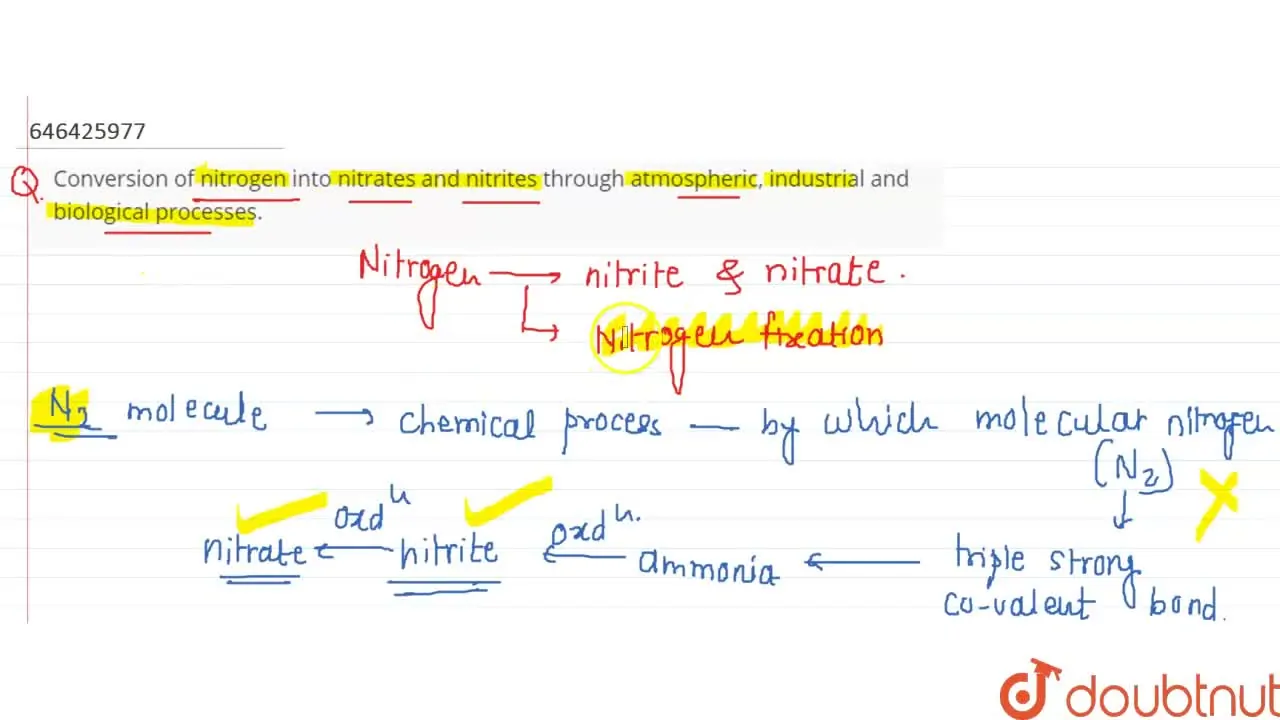 646425977
Q. Conversion of nitrogen into nitrates and nitrites through atmospheric, industrial and
biological processes.
Nitrogen → nitrite & nitrate.
→ Nitrogen fixation
N2 molecule → chemical process — by which molecular nitrogen
(N2)
nitrate ← oxdn nitrite ← oxdn. ammonia ← triple strong
co-valent bond.
doubtnut